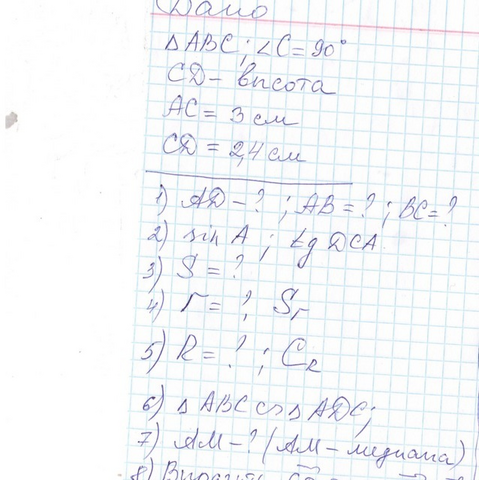 Дано
△ABC; ∠C = 90°
CD – высота
AC = 3 см
CD = 2,4 см
1) AD – ? ; AB = ? ; BC = ?
2) sin A ; tg DCA
3) S = ?
4) r = ? ; Sr
5) R = ? ; CR
6) △ABC ∽ △ADC;
7) AM – ? (AM – медиана)
8)